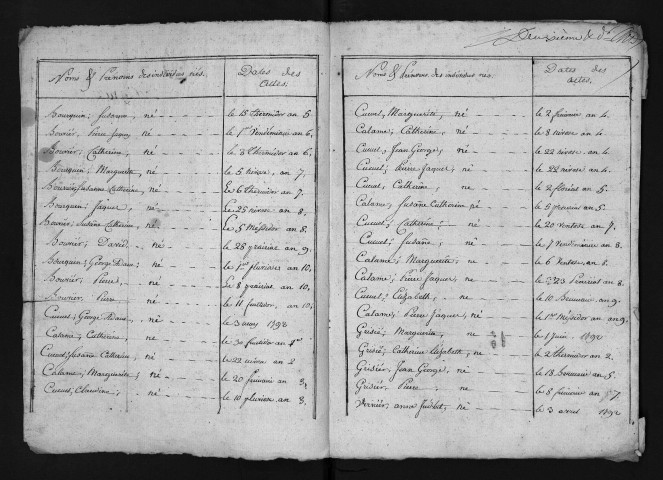 Noms & Prénoms des individus nés. Dates des actes.
Bourquin, Susanne, né le 15 thermidor an 5.
Bouvier, Pierre Jaques, né le 1er Vendémiaire an 6.
Bouvier, Catherine, né le 2 thermidor an 6.
Bourquin, Marguerite, né le 5 nivose, an 7.
Bouvier, Susanne Catherine, né le 6 thermidor an 7.
Bourquin, Jaques, né le 25 nivose an 8.
Bouvier, Susanne Catherine, né le 5 Messidor an 8.
Bouvier, David, né le 28 prairial an 9.
Bourquin, George Adam, né le 1er pluviose an 10.
Bouvier, Pierre, né le 8 prairial an 10.
Bouvier, Pierre, né le 11 fructidor, an 10.
Cucuel, George Adam, né le 3 may 1792
Calame, Catherine, né le 30 fructidor an 1er
Cucuel, Susanne Catherine, né le 22 nivose an 2
Calame, Marguerite, né le 20 frimaire an 3.
Cucuel, Claudine, né le 10 pluviose an 3.
Deuxième &
Noms & Prénoms des individus nés. Dates des actes.
Cucuel, Marguerite, né le 2 frimaire an 4.
Calame, Catherine, né le 8 nivose an 4.
Cucuel, Jean George, né le 22 nivose an 4.
Cucuel, Pierre Jaques, né le 22 nivose an 4.
Cucuel, Catherine, né le 2 floréal an 5.
Calame, Susanne Catherine né le 5 an 5.
Cucuel, Catherine, né le 20 ventose an 7.
Cucuel, Susanne, né le 7 Vendémiaire an 8.
Calame, Marguerite, né le 6 Ventose, an 8.
Calame, Pierre Jaques, né le 23 an 8.
Cucuel, Elisabeth, né le 10 Brumaire an 9.
Calame, Pierre Jaques, né le 1er Messidor an 9.
Grisié, Marguerite, né le 1 juin 1792
Grisié, Catherine Elisabeth, né le 2 thermidor an 2.
Grisier, Jean George, né le 18 Brumaire an 5.
Grisier, Pierre, né le 8 frimaire an 7.
Verrier, anne né le 3 avril 1792